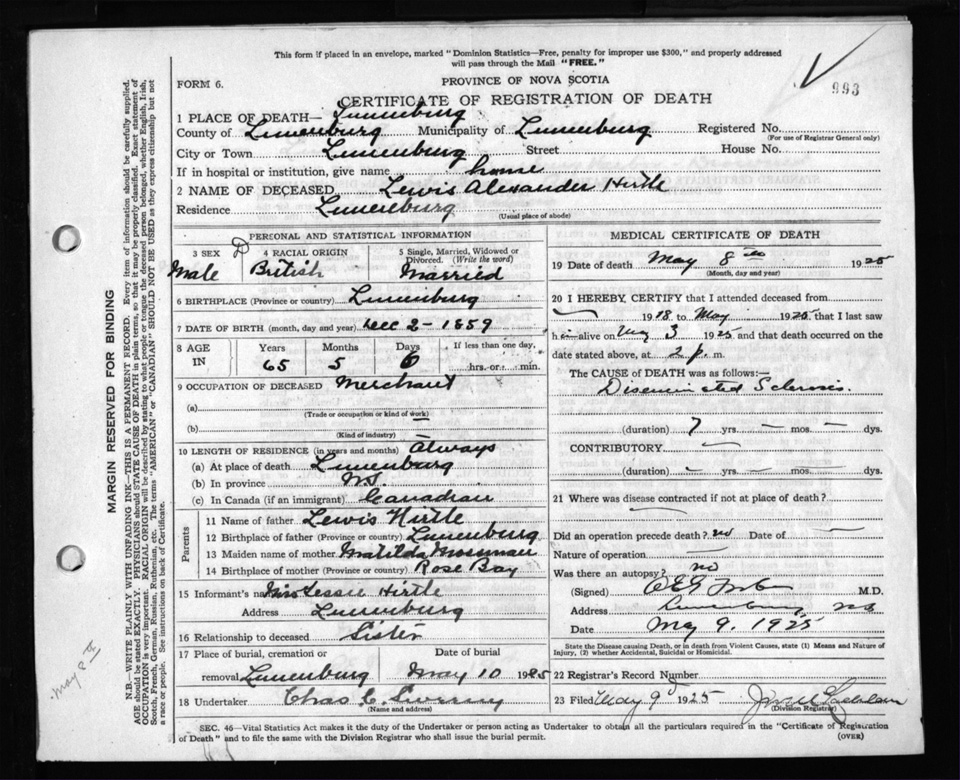 This form if placed in an envelope, marked "Dominion Statistics—Free, penalty for improper use $300," and properly addressed
will pass through the Mail "FREE."
993
FORM 6.
PROVINCE OF NOVA SCOTIA
CERTIFICATE OF REGISTRATION OF DEATH
1 PLACE OF DEATH— Lunenburg
County of Lunenburg Municipality of Lunenburg Registered No.
(For use of Registrar General only)
City or Town Lunenburg Street House No.
If in hospital or institution, give name home
2 NAME OF DECEASED Lewis Alexander Hirtle
Residence Lunenburg
(Usual place of abode)
PERSONAL AND STATISTICAL INFORMATION
3 SEX 4 RACIAL ORIGIN 5 Single, Married, Widowed or
Divorced. (Write the word)
Male British Married
6 BIRTHPLACE (Province or country) Lunenburg
7 DATE OF BIRTH (month, day and year) Dec 2 - 1859
8 AGE IN Years Months Days If less than one day,
65 5 6 hrs. or min.
9 OCCUPATION OF DECEASED Merchant
(a)
(Trade or occupation or kind of work)
(b) —
(Kind of industry)
10 LENGTH OF RESIDENCE (in years and months) Always
(a) At place of death Lunenburg
(b) In province N.S.
(c) In Canada (if an immigrant) Canadian
Parents
11 Name of father Lewis Hirtle
12 Birthplace of father (Province or country) Lunenburg
13 Maiden name of mother Matilda Mosman
14 Birthplace of mother (Province or country) Rose Bay
15 Informant's name Miss Jessie Hirtle
Address Lunenburg
16 Relationship to deceased Sister
17 Place of burial, cremation or Date of burial
removal Lunenburg May 10 1925
18 Undertaker Chas C.
(Name and address)
MEDICAL CERTIFICATE OF DEATH
19 Date of death May 8th 1925
(Month, day and year)
20 I HEREBY CERTIFY that I attended deceased from
1918 to May 1925 that I last saw
him alive on May 3 1925 and that death occurred on the
date stated above, at 2 p. m.
The CAUSE of DEATH was as follows:—
Disseminated Sclerosis.
(duration) 7 yrs. — mos. — dys.
CONTRIBUTORY
(duration) — yrs. — mos. — dys.
21 Where was disease contracted if not at place of death?
Did an operation precede death? no Date of —
Nature of operation —
Was there an autopsy? no
(Signed) M.D.
Address Lunenburg N.S.
Date May 9. 1925
State the Disease causing Death, or in death from Violent Causes, state (1) Means and Nature of
Injury, (2) whether Accidental, Suicidal or Homicidal.
22 Registrar's Record Number
23 Filed May 9th 1925
(Division Registrar)
SEC. 46—Vital Statistics Act makes it the duty of the Undertaker or person acting as Undertaker to obtain all the particulars required in the "Certificate of Registration
of Death" and to file the same with the Division Registrar who shall issue the burial permit. (OVER)
MARGIN RESERVED FOR BINDING
N.B.—WRITE PLAINLY WITH UNFADING INK—THIS IS A PERMANENT RECORD. Every item of information should be carefully supplied.
AGE should be stated EXACTLY. PHYSICIANS should STATE CAUSE OF DEATH in plain terms, so that it may be properly classified. Exact statement of
OCCUPATION is very important. RACIAL ORIGIN will be described by stating to what people or tongue the deceased person belonged, whether English, Irish,
Scotch, French, German, Russian, Ruthenian, etc. The terms "AMERICAN" or "CANADIAN" SHOULD NOT BE USED as they express citizenship but not
a race or people. See instructions on back of Certificate.
May 8th